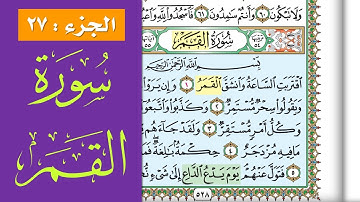 الجزء : ٢٧
سُورَة
القمر
وَلَا تَبْكُونَ ٦٠ وَأَنتُمْ سَٰمِدُونَ ٦١ فَٱسْجُدُوا۟ لِلَّهِ وَٱعْبُدُوا۟
سُورَةُ القَمَرِ
بِسْمِ ٱللَّهِ ٱلرَّحْمَٰنِ ٱلرَّحِيمِ
ٱقْتَرَبَتِ ٱلسَّاعَةُ وَٱنشَقَّ ٱلْقَمَرُ ١ وَإِن يَرَوْا۟
وَيَقُولُوا۟ سِحْرٌ مُّسْتَمِرٌّ ٢ وَكَذَّبُوا۟ وَٱتَّبَعُوٓا۟
وَكُلُّ أَمْرٍ مُّسْتَقِرٌّ ٣ وَلَقَدْ جَآءَهُم
مَا فِيهِ مُزْدَجَرٌ ٤ حِكْمَةٌۢ بَٰلِغَةٌ
٥ فَتَوَلَّ عَنْهُمْ يَوْمَ يَدْعُ ٱلدَّاعِ إِلَىٰ شَىْءٍ نُّ
٥٢٨